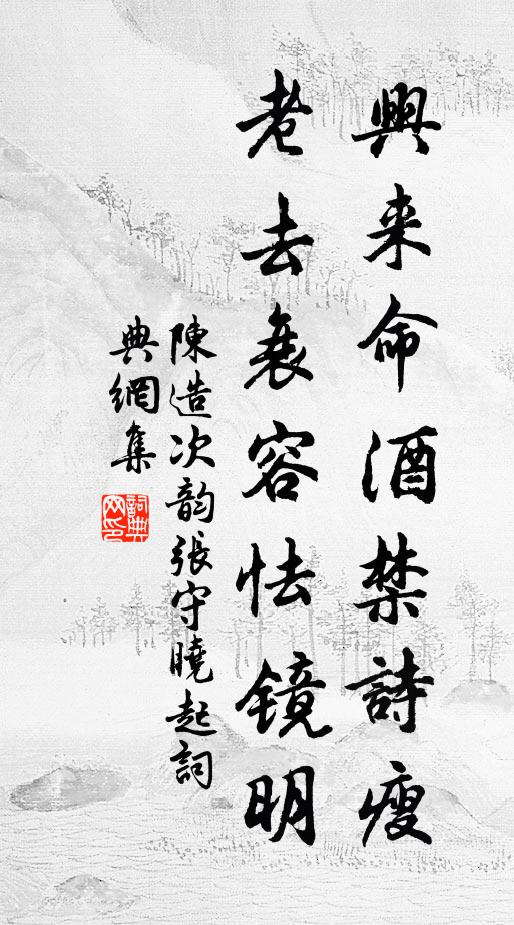 興来命酒禁詩瘦
老去衰容怯鏡明
陳造次韵張守曉起詞
典網集
詞典網印